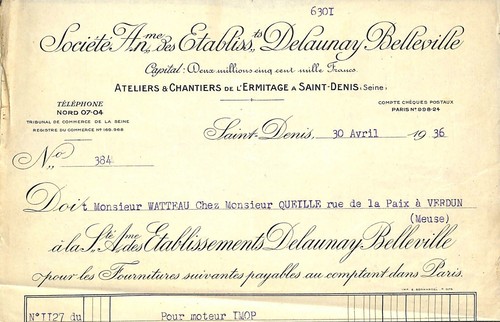 6301
Société An.me des Etabliss.ts Delaunay Belleville
Capital: Deux millions cinq cent mille Francs.
ATELIERS & CHANTIERS DE L'ERMITAGE A SAINT-DENIS (Seine)
TÉLÉPHONE
NORD 07-04
TRIBUNAL DE COMMERCE DE LA SEINE
REGISTRE DU COMMERCE Nº 169.968
COMPTE CHÈQUES POSTAUX
PARIS Nº 998-24
Saint-Denis, 30 Avril 1936
Nº 384
Doit Monsieur WATTEAU Chez Monsieur QUEILLE rue de la Paix à VERDUN
(Meuse)
à la S.té A.me des Etablissements Delaunay Belleville
pour les Fournitures suivantes payables au comptant dans Paris.
N°II27 du Pour moteur IMOP